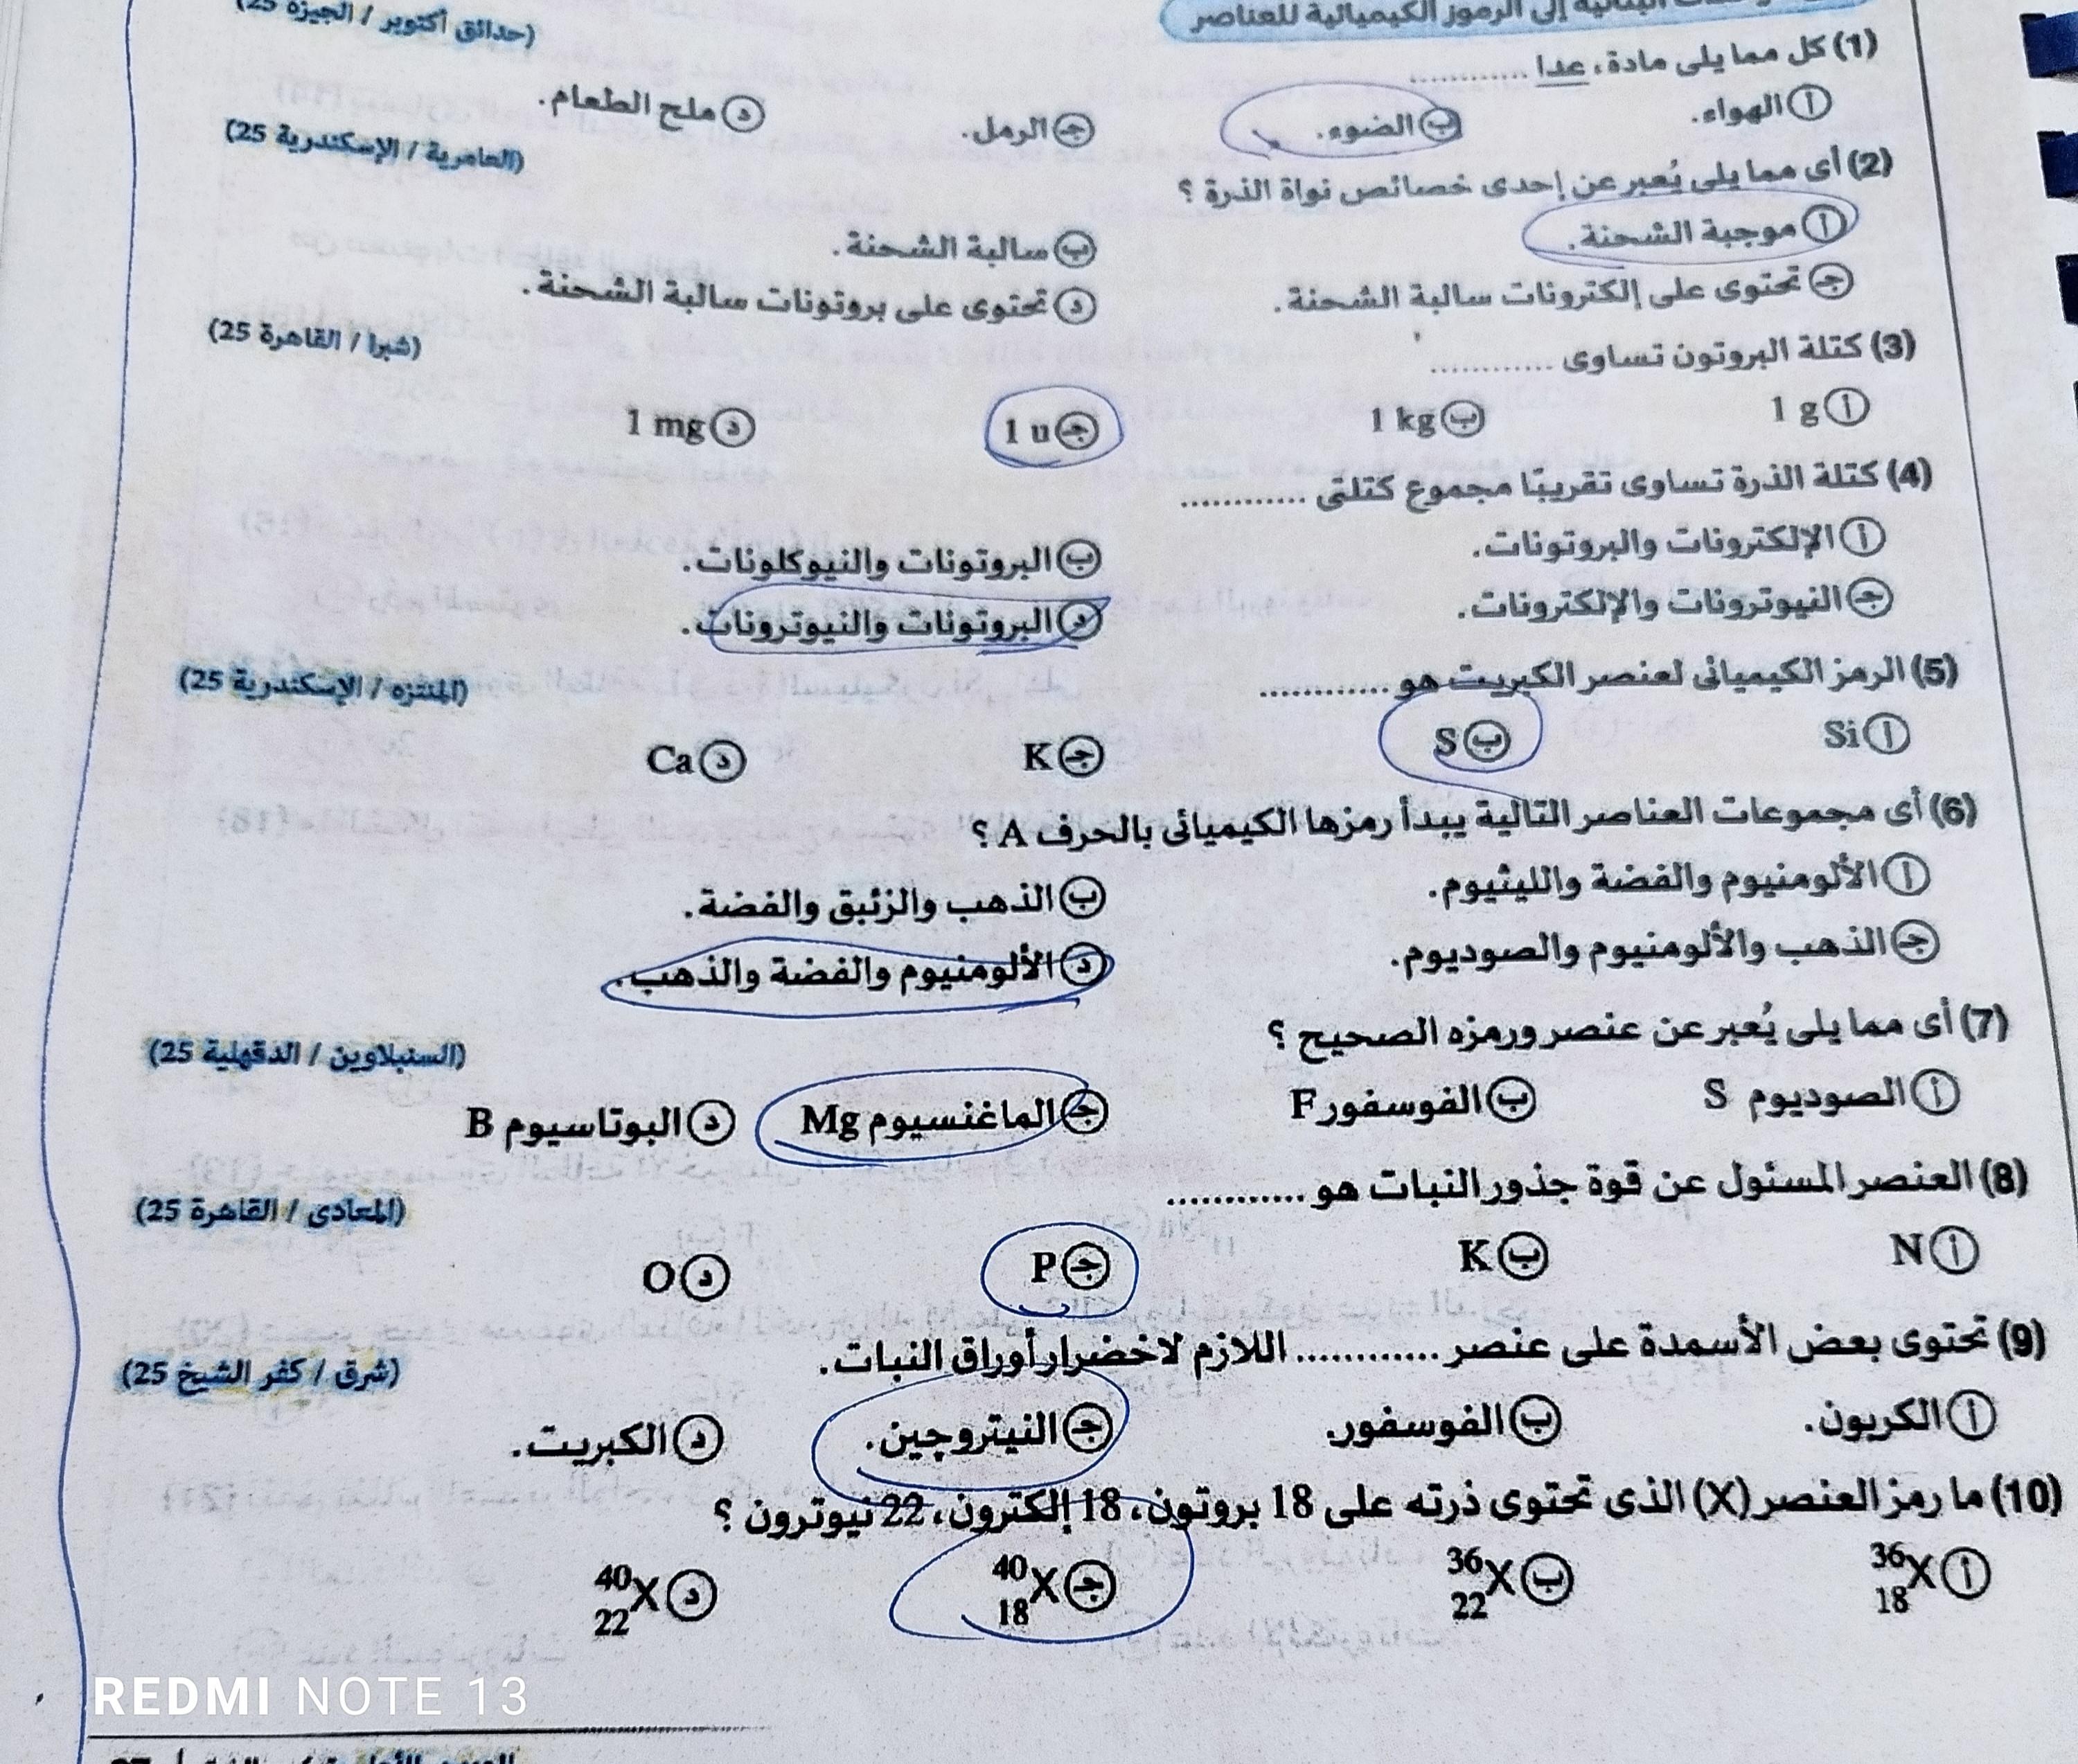 (حدائق أكتوبر / الجيزة 25)
إلى الرموز الكيميائية للعناصر
(1) كل مما يلى مادة، عدا ............
أ الهواء. ب الضوء. جـ الرمل. د ملح الطعام.
(العامرية / الإسكندرية 25)
(2) أى مما يلى يُعبر عن إحدى خصائص نواة الذرة ؟
أ موجبة الشحنة. ب سالبة الشحنة.
جـ تحتوى على إلكترونات سالبة الشحنة. د تحتوى على بروتونات سالبة الشحنة.
(3) كتلة البروتون تساوى ............ (شبرا / القاهرة 25)
أ 1 g ب 1 kg جـ 1 u د 1 mg
(4) كتلة الذرة تساوى تقريبًا مجموع كتلتى ............
أ الإلكترونات والبروتونات. ب البروتونات والنيوكلونات.
جـ النيوترونات والإلكترونات. د البروتونات والنيوترونات.
(5) الرمز الكيميائى لعنصر الكبريت هو ............ (المنتزه / الإسكندرية 25)
أ Si ب S جـ K د Ca
(6) أى مجموعات العناصر التالية يبدأ رمزها الكيميائى بالحرف A ؟
أ الألومنيوم والفضة والليثيوم. ب الذهب والزئبق والفضة.
جـ الذهب والألومنيوم والصوديوم. د الألومنيوم والفضة والذهب.
(7) أى مما يلى يُعبر عن عنصر ورمزه الصحيح ؟ (السنبلاوين / الدقهلية 25)
أ الصوديوم S ب الفوسفور F جـ الماغنسيوم Mg د البوتاسيوم B
(8) العنصر المسئول عن قوة جذور النبات هو ............ (المعادى / القاهرة 25)
أ N ب K جـ P د O
(9) تحتوى بعض الأسمدة على عنصر ............ اللازم لاخضرار أوراق النبات. (شرق / كفر الشيخ 25)
أ الكربون. ب الفوسفور. جـ النيتروجين. د الكبريت.
(10) ما رمز العنصر (X) الذى تحتوى ذرته على 18 بروتون، 18 إلكترون، 22 نيوترون ؟
أ ³⁶₁₈X ب ³⁶₂₂X جـ ⁴⁰₁₈X د ⁴⁰₂₂X
REDMI NOTE 13